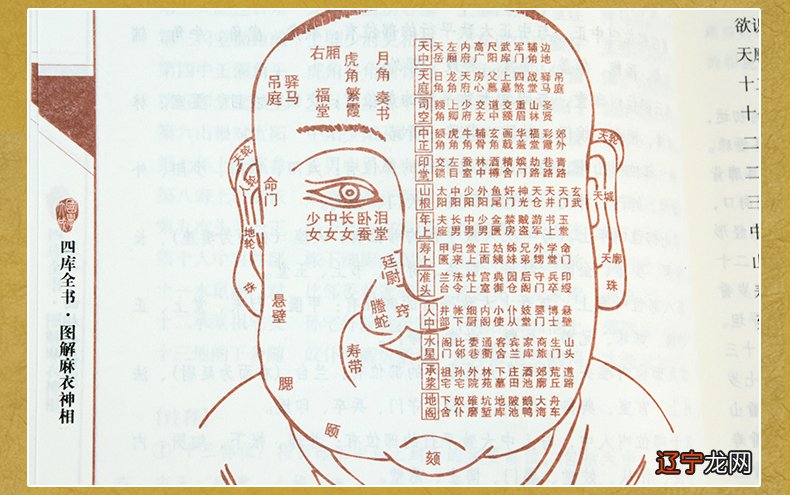 四库全书·图解麻衣神相
右厢
虎角
月角
吊庭
驿马
福堂
繁霞
奏书
天轮
命门
地轮
珠
悬壁
少女 中女 长女 卧蚕 泪堂
廷尉
螣蛇
窍
寿带
腮
颐
颏
天中 天岳 左厢 内府 高广 尺阳 武库 军门 辅角 边地
天庭 日角 龙角 天府 房心 父墓 上墓 四煞 战堂 驿马 吊庭
司空 额角 上卿 少府 交友 道中 交额 重眉 山林 圣贤
中正 额角 虎角 牛角 辅骨 玄角 华盖 福堂 彩霞
印堂 交锁 左目 林中 精舍 嫔门 劫路 巷路 青路
山根 太阳 中阳 少阳 外阳 鱼尾 奸门 神光 天仓 天井 天门 玄武
年上 夫座 长男 中男 少男 金匮 禁房 贼盗 游军 书上 玉堂
寿上 甲匮 归来 堂上 正面 姑姨 姊妹 兄弟 外甥 学堂 命门
准头 兰台 法令 灶上 宫室 典御 园仓 后阁 守门 兵卒 印绶
人中 井部 帐下 细厨 内阁 小使 仆从 妓堂 婴门 博士 悬壁
水星 阁门 比邻 委巷 通衢 客舍 宾兰 家库 商旅 生门 山头
承浆 祖宅 孙宅 外院 林苑 下墓 庄田 酒池 郊廓 荒丘 道路
地阁 下舍 奴仆 碓磨 坑堑 地库 陂池 鹅鸭 大海 舟车
天轮
天城
天廓
珠
辽宁龙网